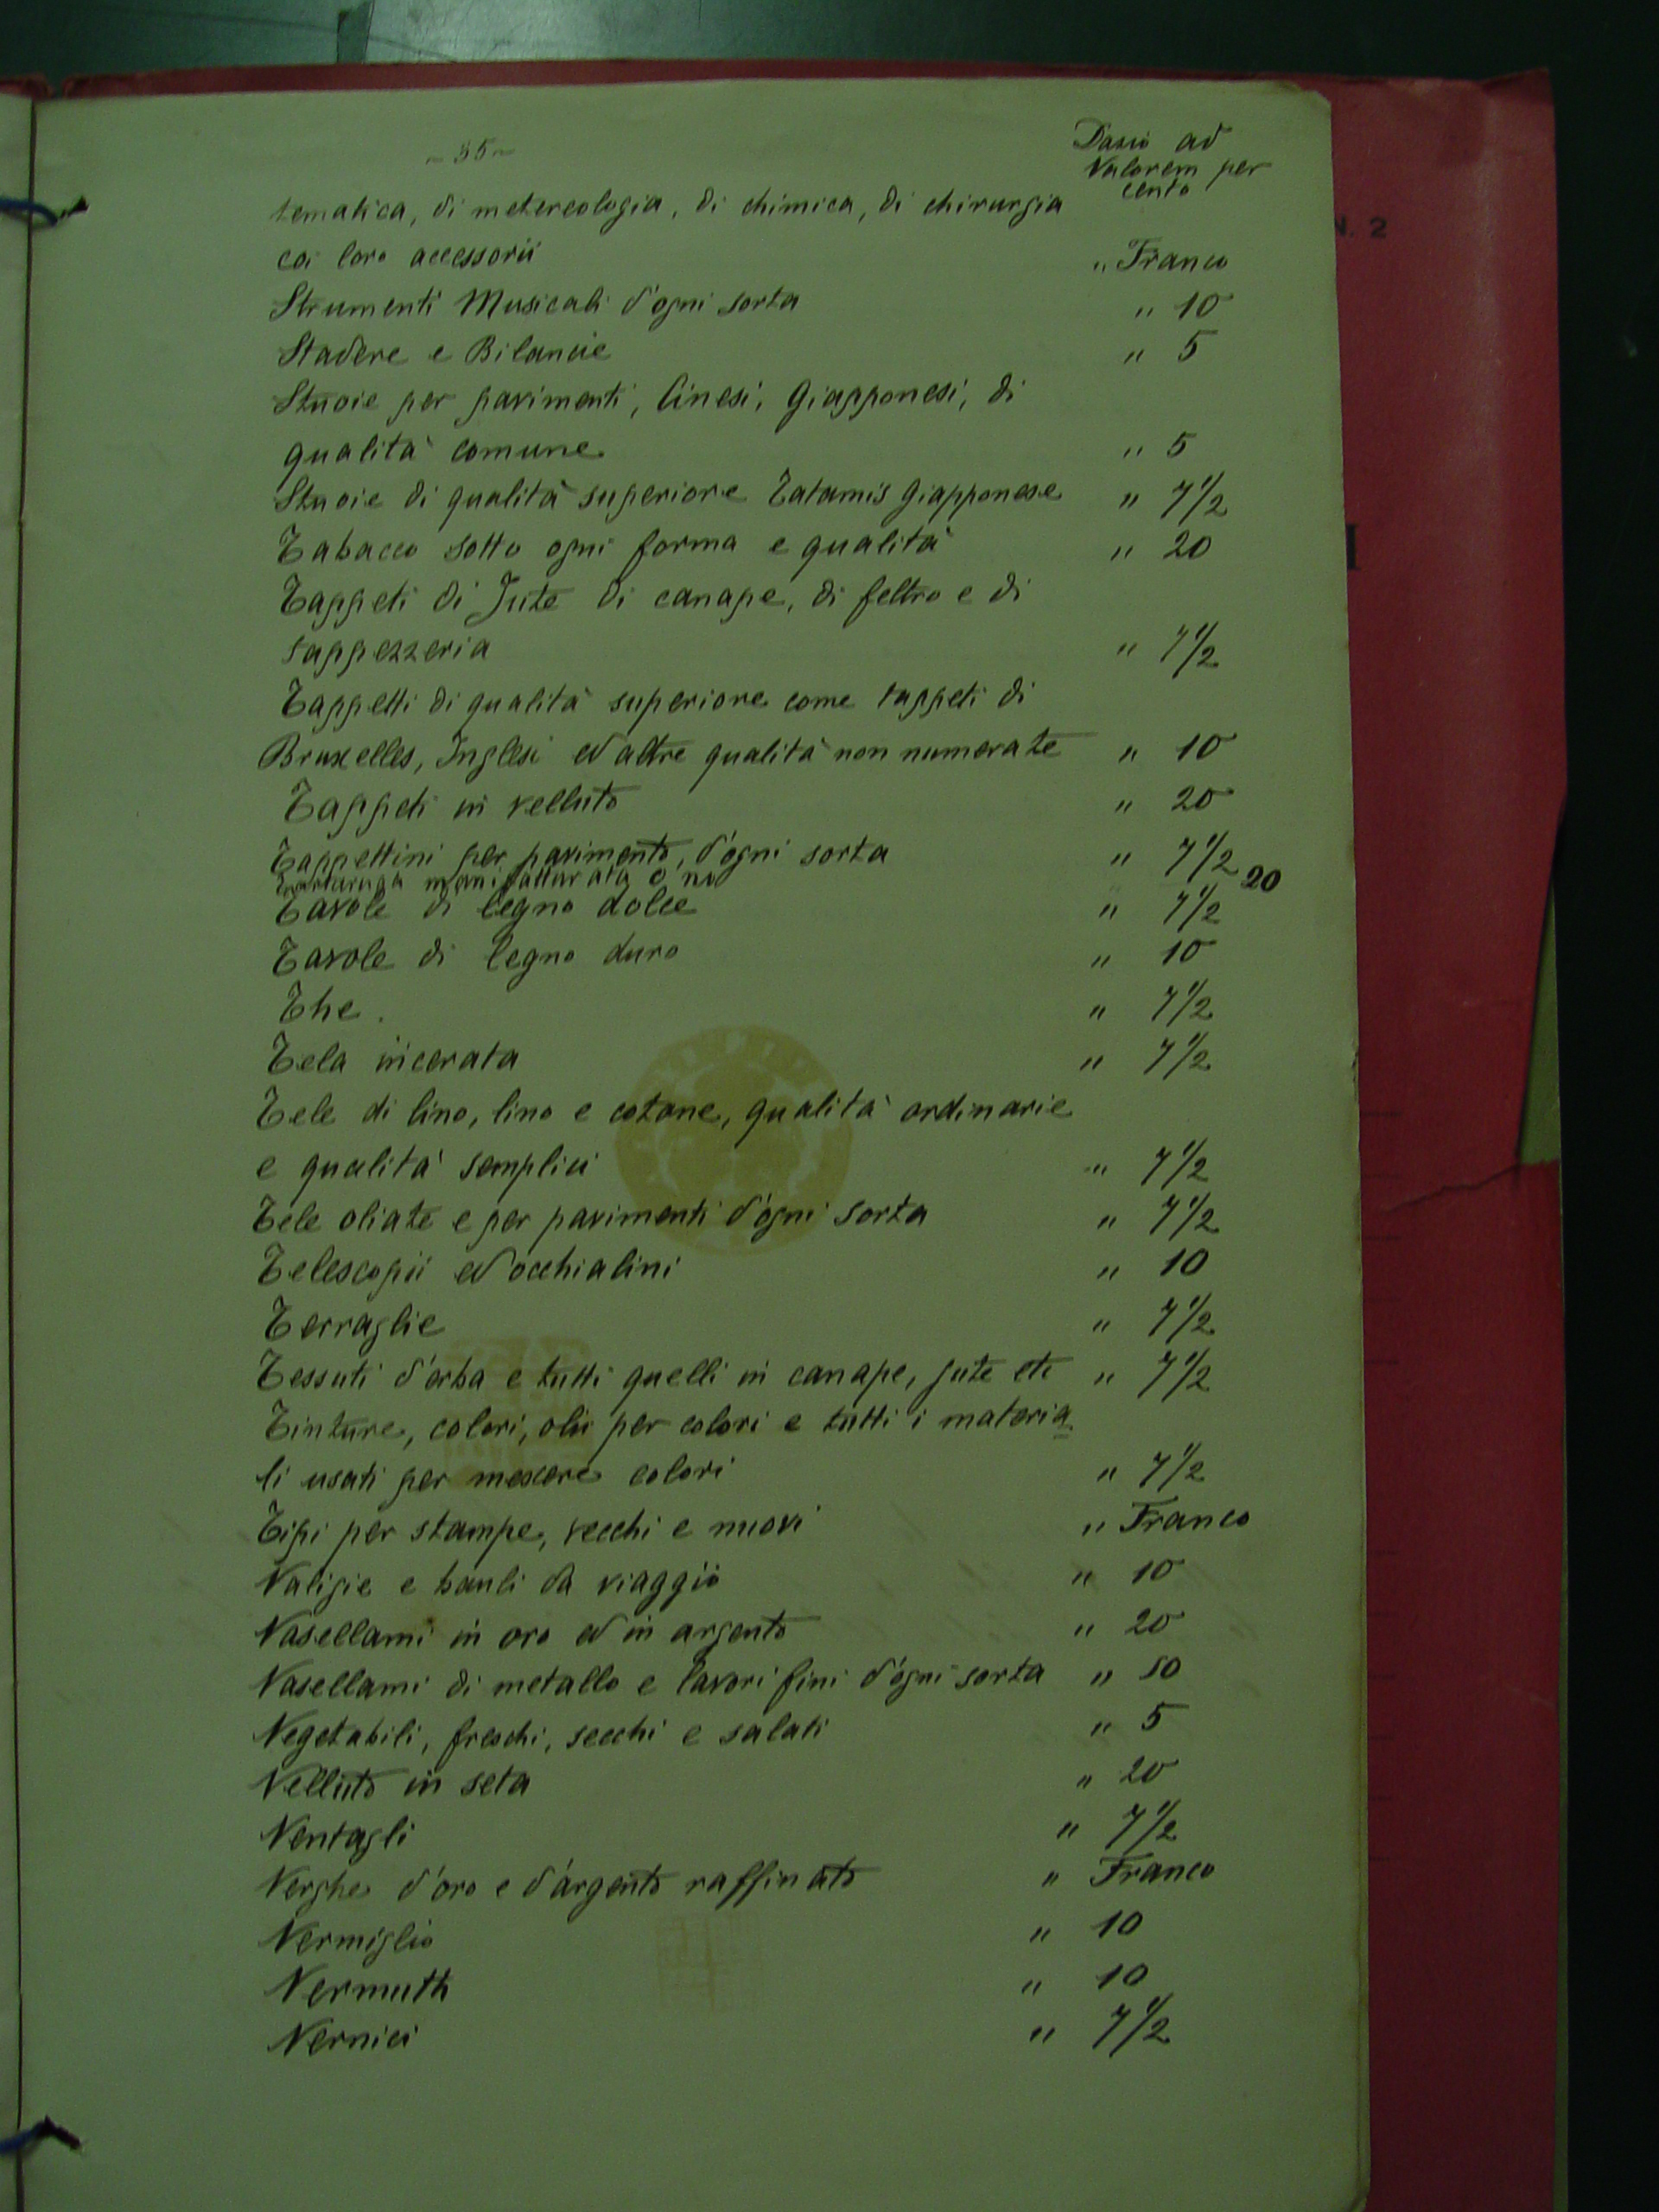 - 35 -
Dazio ad
Valorem per
cento
tematica, di metereologia, di chimica, di chirurgia
coi loro accessorii " Franco
Strumenti Musicali d'ogni sorta " 10
Stadere e Bilancie " 5
Stuoie per pavimenti, Cinesi, Giapponesi, di
qualità comune " 5
Stuoie di qualità superiore Tatamis Giapponese " 7 1/2
Tabacco sotto ogni forma e qualità " 20
Tappeti di Jute di canape, di feltro e di
tappezzeria " 7 1/2
Tappetti di qualità superiore come tappeti di
Bruxelles, Inglesi ed altre qualità non numerate " 10
Tappeti in velluto " 20
Tappettini per pavimento, d'ogni sorta " 7 1/2
Tartaruga manifatturata o no 20
Tavole di legno dolce " 7 1/2
Tavole di legno duro " 10
The. " 7 1/2
Tela incerata " 7 1/2
Tele di lino, lino e cotone, qualità ordinarie
e qualità semplici " 7 1/2
Tele oliate e per pavimenti d'ogni sorta " 7 1/2
Telescopii ed occhialini " 10
Terraglie " 7 1/2
Tessuti d'erba e tutti quelli in canape, jute etc " 7 1/2
Tinture, colori, olii per colori e tutti i materia
li usati per mescere colori " 7 1/2
Tipi per stampe, vecchi e nuovi " Franco
Valigie e bauli da viaggio " 10
Vasellami in oro ed in argento " 20
Vasellami di metallo e lavori fini d'ogni sorta " 10
Vegetabili, freschi, secchi e salati " 5
Velluto in seta " 20
Ventagli " 7 1/2
Verghe d'oro e d'argento raffinato " Franco
Vermiglio " 10
Vermuth " 10
Vernici " 7 1/2
N. 2